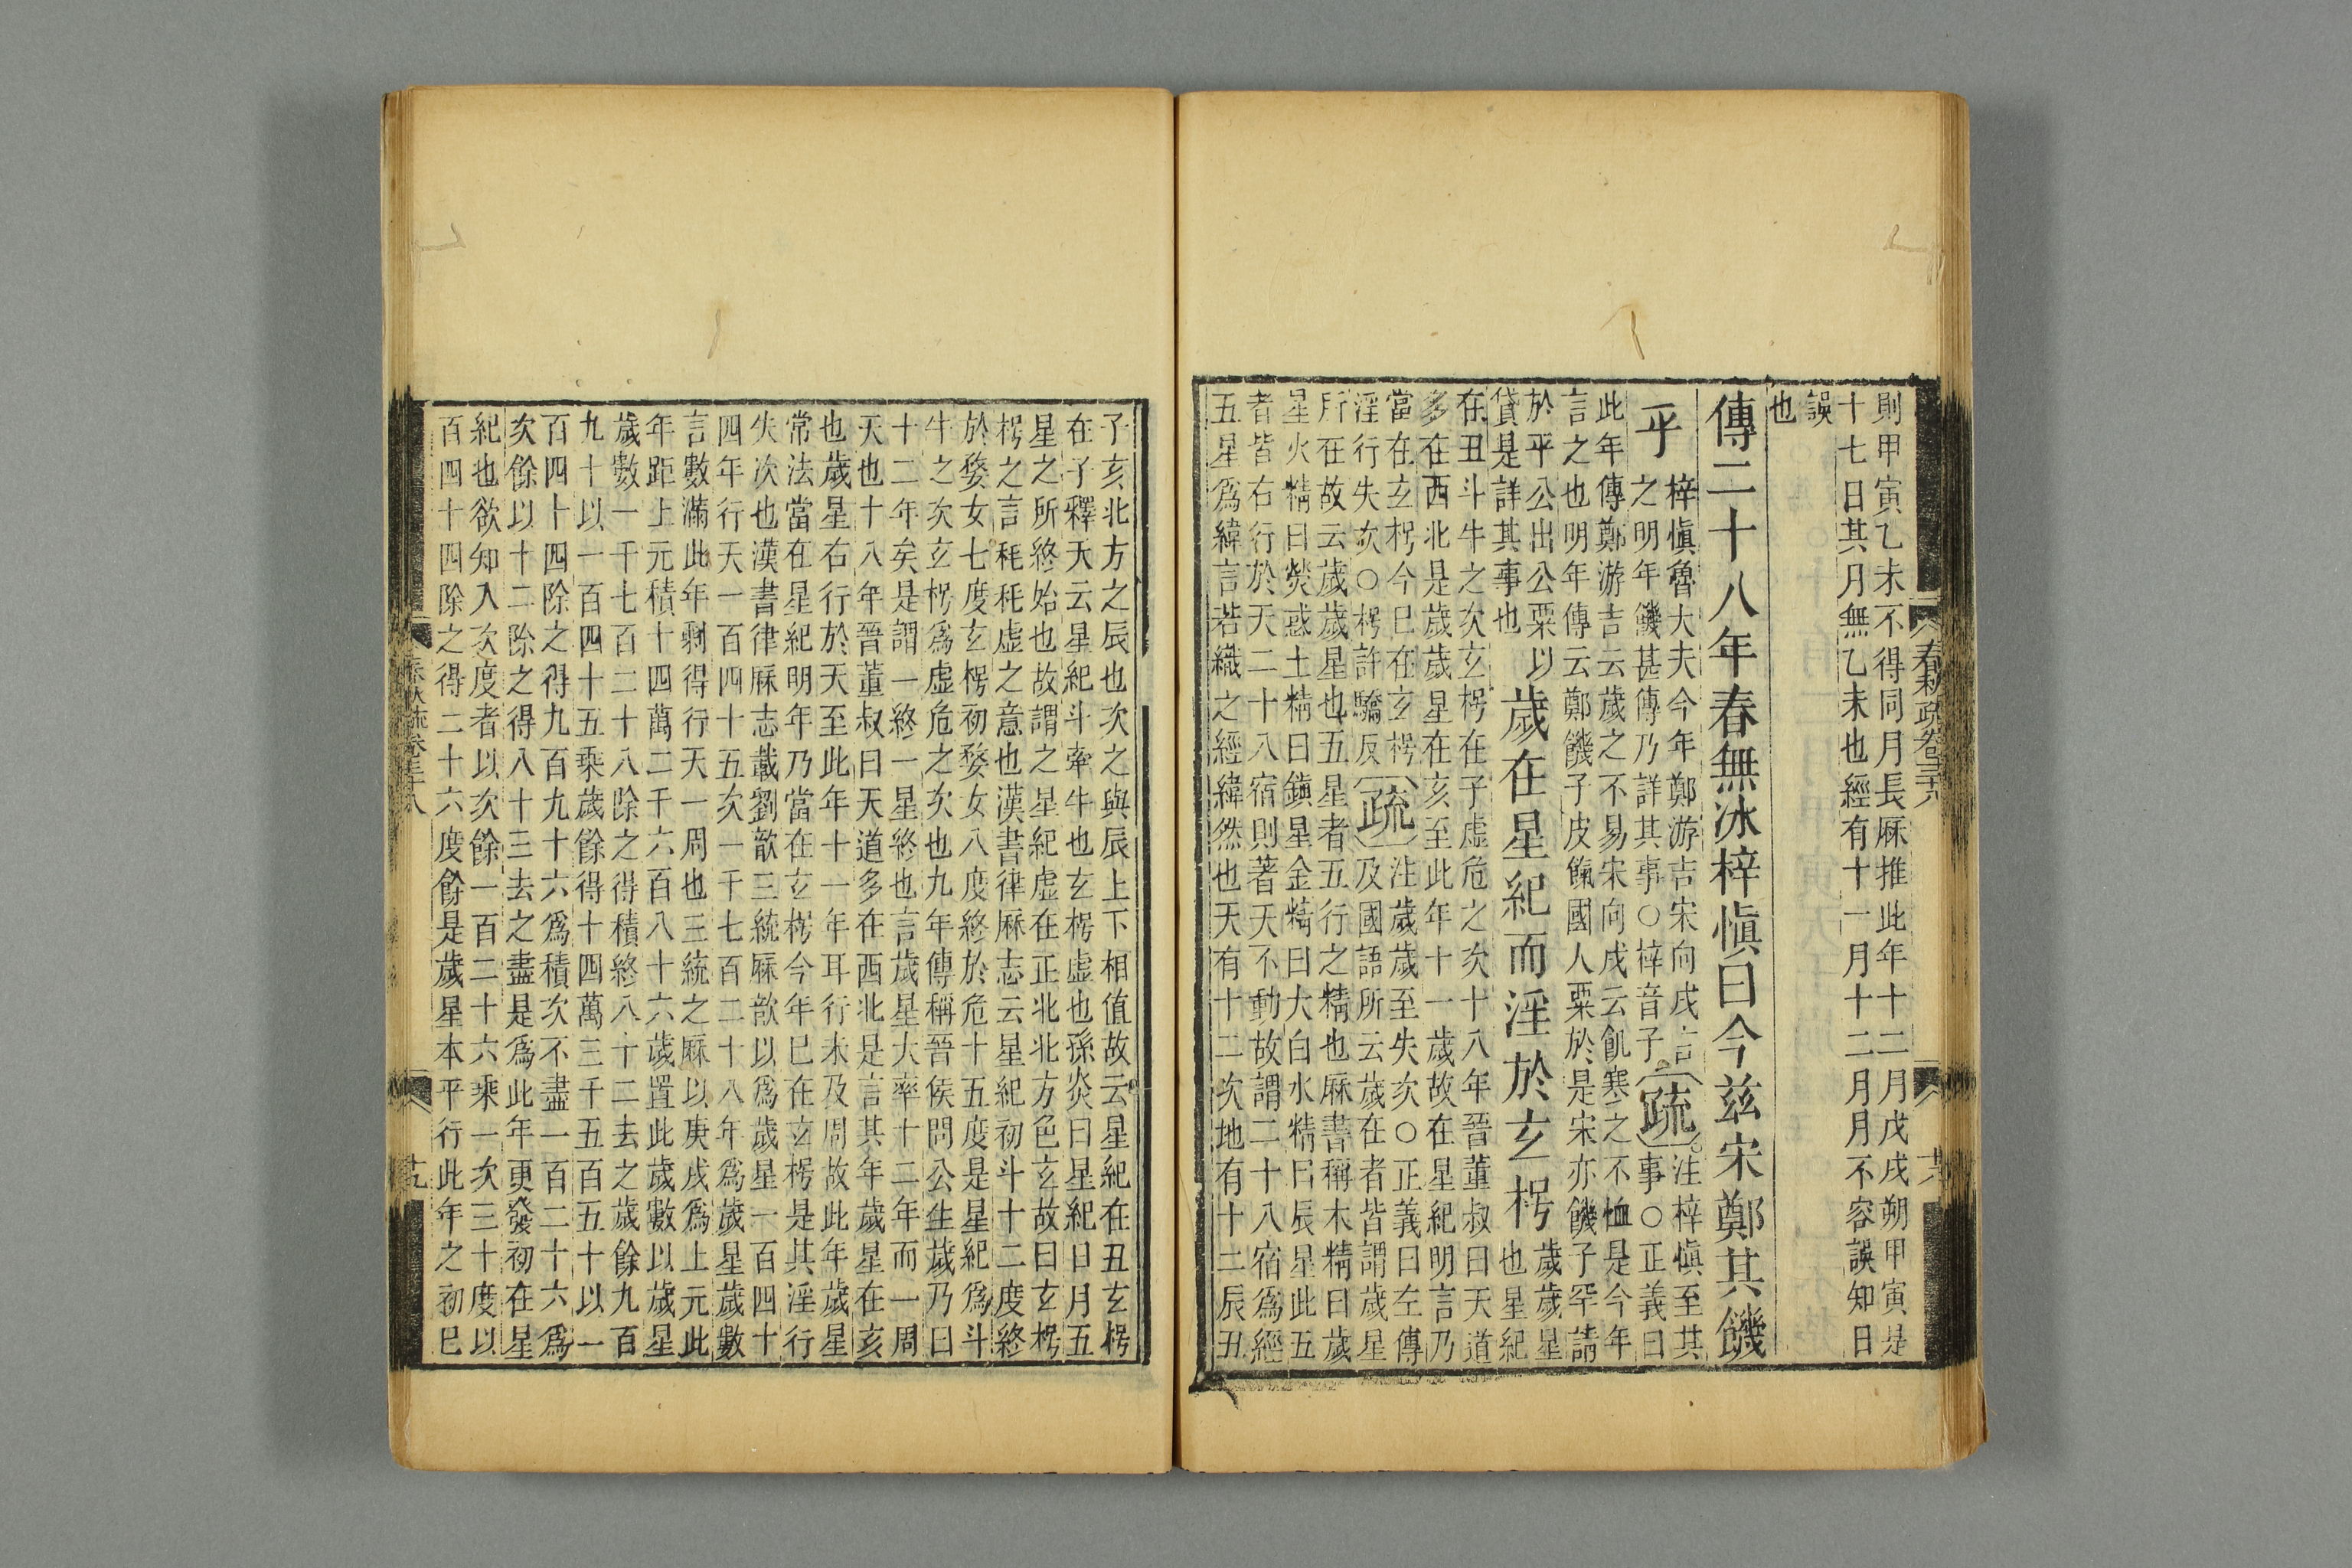 則甲寅乙未不得同月長厤推此年十二月戊戌朔甲寅是
十七日其月無乙未也經有十一月十二月月不容誤知日
誤
也
傳二十八年春無冰梓愼曰今兹宋鄭其饑
乎
梓愼魯大夫今年鄭游吉宋向戌言
之明年饑甚傳乃詳其事○梓音子
疏
注梓愼至其
事○正義曰
此年傳鄭游吉云歲之不易宋向戌云飢寒之不恤是今年
言之也明年傳云鄭饑子皮餼國人粟於是宋亦饑子罕請
於平公出公粟以
貸是詳其事也
歲在星紀而淫於玄枵
歲歲星
也星紀
在丑斗牛之次玄枵在子虛危之次十八年晉董叔曰天道
多在西北是歲歲星在亥至此年十一歲故在星紀明言乃
當在玄枵今已在玄枵
淫行失次○枵許驕反
疏
注歲歲至失次○正義曰左傳
及國語所云歲在者皆謂歲星
所在故云歲歲星也五星者五行之精也厤書稱木精曰歲
星火精曰熒惑土精曰鎭星金精曰大白水精曰辰星此五
者皆右行於天二十八宿則著天不動故謂二十八宿爲經
五星爲緯言若織之經緯然也天有十二次地有十二辰丑
春秋疏卷三十八
子亥北方之辰也次之與辰上下相值故云星紀在丑玄枵
在子釋天云星紀斗牽牛也玄枵虛也孫炎曰星紀日月五
星之所終始也故謂之星紀虛在正北北方色玄故曰玄枵
枵之言秏秏虛之意也漢書律厤志云星紀初斗十二度終
於婺女七度玄枵初婺女八度終於危十五度是星紀爲斗
牛之次玄枵爲虛危之次也九年傳稱晉侯問公生歲乃曰
十二年矣是謂一終一星終也言歲星大率十二年而一周
天也十八年晉董叔曰天道多在西北是言其年歲星在亥
也歲星右行於天至此年十一年耳行未及周故此年歲星
常法當在星紀明年乃當在玄枵今年已在玄枵是其淫行
失次也漢書律厤志載劉歆三統厤歆以爲歲星一百四十
四年行天一百四十五次一千七百二十八年爲歲星歲數
言數滿此年剩得行天一周也三統之厤以庚戌爲上元此
年距上元積十四萬二千六百八十六歲置此歲數以歲星
歲數一千七百二十八除之得積終八十二去之歲餘九百
九十以一百四十五乘歲餘得十四萬三千五百五十以一
百四十四除之得九百九十六爲積次不盡一百二十六爲
次餘以十二除之得八十三去之盡是爲此年更發初在星
紀也欲知入次度者以次餘一百二十六乘一次三十度以
百四十四除之得二十六度餘是歲星本平行此年之初已